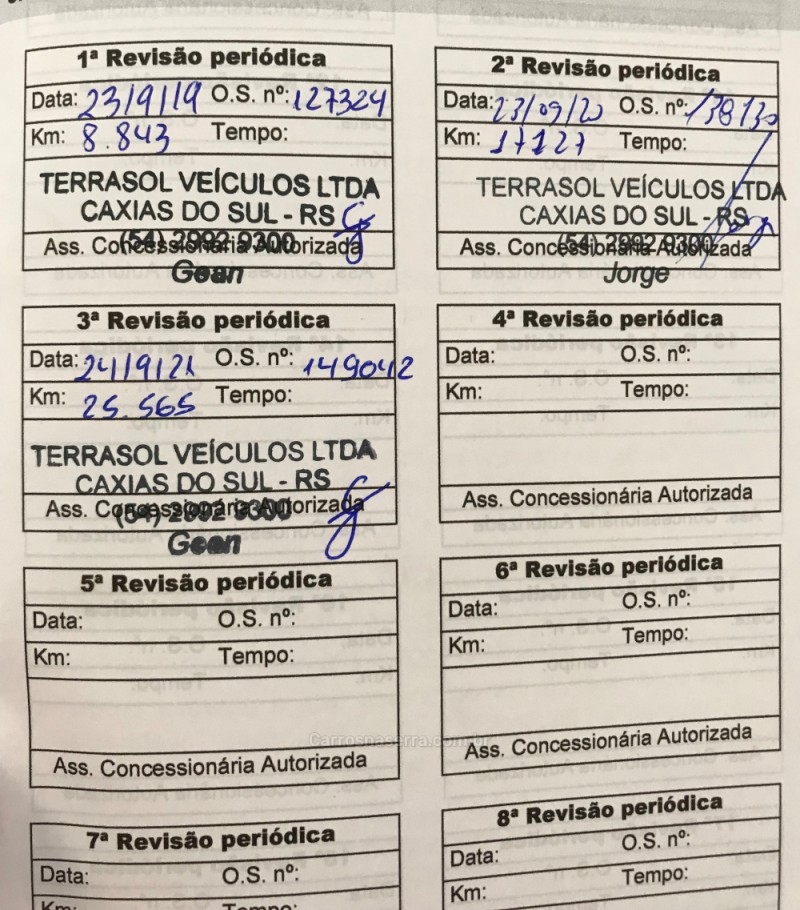 1ª Revisão periódica
Data: 23/9/19 O.S. nº: 127324
Km: 8.843 Tempo:
TERRASOL VEÍCULOS LTDA
CAXIAS DO SUL - RS
(54) 2992 9300
Ass. Concessionária Autorizada
Gean
2ª Revisão periódica
Data: 23/09/20 O.S. nº: 138130
Km: 17127 Tempo:
TERRASOL VEÍCULOS LTDA
CAXIAS DO SUL - RS
(54) 2992 9300
Ass. Concessionária Autorizada
Jorge
3ª Revisão periódica
Data: 24/9/21 O.S. nº: 149042
Km: 25.565 Tempo:
TERRASOL VEÍCULOS LTDA
CAXIAS DO SUL - RS
(54) 2992 9300
Ass. Concessionária Autorizada
Gean
4ª Revisão periódica
Data: O.S. nº:
Km: Tempo:
Ass. Concessionária Autorizada
5ª Revisão periódica
Data: O.S. nº:
Km: Tempo:
Ass. Concessionária Autorizada
6ª Revisão periódica
Data: O.S. nº:
Km: Tempo:
Ass. Concessionária Autorizada
Carrosnaserra.com.br
7ª Revisão periódica
Data: O.S. nº:
Km: Tempo:
8ª Revisão periódica
Data: O.S. nº:
Km: Tempo: